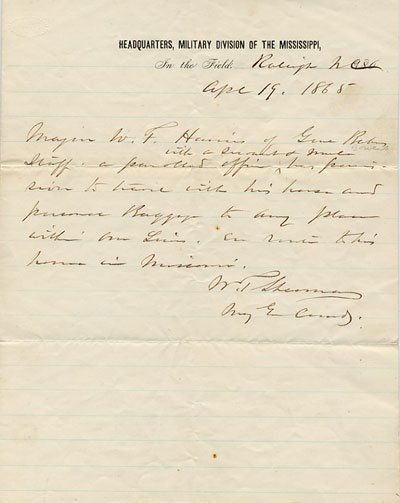 HEADQUARTERS, MILITARY DIVISION OF THE MISSISSIPPI,
In the Field, Raleigh N C 186
Apl 19, 1865
Major W. F. Haines of Genl
with a servant & mule
Staff. a paroled officer, has permis
sion to travel with his horse and
personal Baggage to any place
within our Lines. en route to his
home in Missouri.
W. T. Sherman
Maj Gen Comdg.